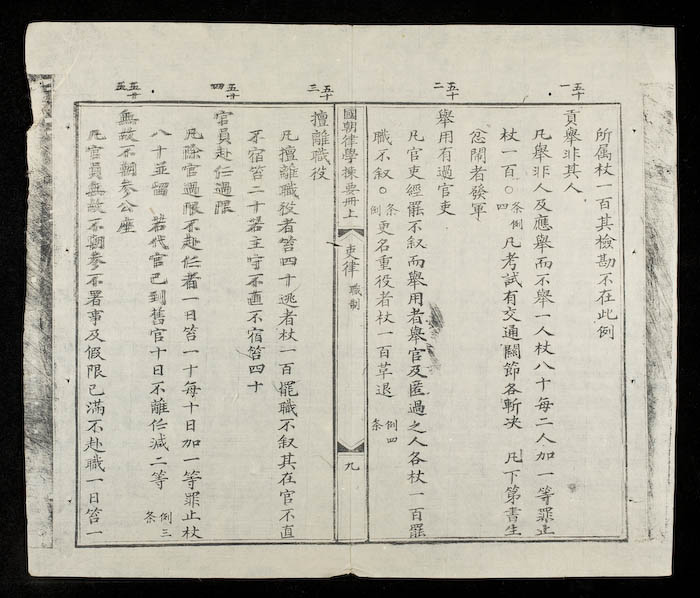 五十一
五十二
五十三
五十四
五十五
所属杖一百其檢勘不在此例
貢舉非其人
凡舉非人及應舉而不舉一人杖八十每二人加一等罪止
杖一百○條例四凡考試有交通關節各斬决 凡下第書生
忿鬧者發軍
舉用有過官吏
凡官吏經罷不叙而舉用者舉官及匿過之人各杖一百罷
職不叙○條例吏名重役者杖一百革退 例四条
國朝律學揀要冊上 吏律 職制 九
擅離職役
凡擅離職役者笞四十逃者杖一百罷職不叙其在官不直
不宿笞二十若主守不直不宿笞四十
官員赴任過限
凡除官過限不赴任者一日笞一十每十日加一等罪止杖
八十並留 若代官已到舊官十日不離任减二等 例三条
無故不朝參公座
凡官員無故不朝參不署事及假限已滿不赴職一日笞一